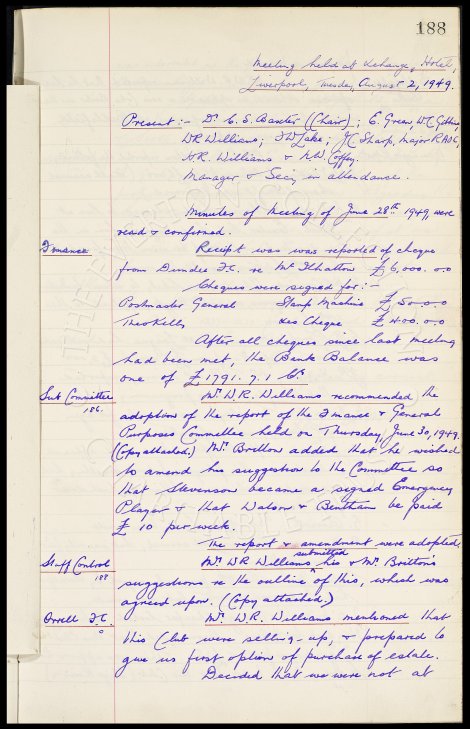 188
Meeting held at Exchange Hotel,
Liverpool, Tuesday, August 2, 1949.
Present:- Dr. C. S. Baxter (Chair); E. Green, W.C. Gibbins,
W.R. Williams; J.C. Sharp, Major R.
N.R. Williams & N.W. Coffey.
Manager & Secy in attendance.
Minutes of Meeting of June 28th 1949, were
read & confirmed.
Finance
Receipt was was reported of cheque
from Dundee F.C. re Mc £6,000.0.0
Cheques were signed for:-
Postmaster General Stamp Machine £50-0-0
Theo Kelly xes Cheque £400.0.0
After all cheques since last meeting
had been met, the Bank Balance was
one of £1791.7.1 Cr
Sub Committee
186.
Mr W.R. Williams recommended the
adoption of the report of the Finance & General
Purposes Committee held on Thursday, June 30, 1949.
(Copy attached.) Mr. Britton added that he wished
to amend his suggestion to the Committee so
that Stevenson became a signed Emergency
Player & that Watson & Bentham be paid
£10 per week.
The report & amendment were adopted.
Staff Control
188
Mr. W R Williams submitted his & Mr. Britton's
suggestions re the outline of this, which was
agreed upon. (Copy attached.)
Orrell F.C.
Mr. W.R. Williams mentioned that
this Club were selling-up, & prepared to
give us first option of purchase of estate.
Decided that we were not at